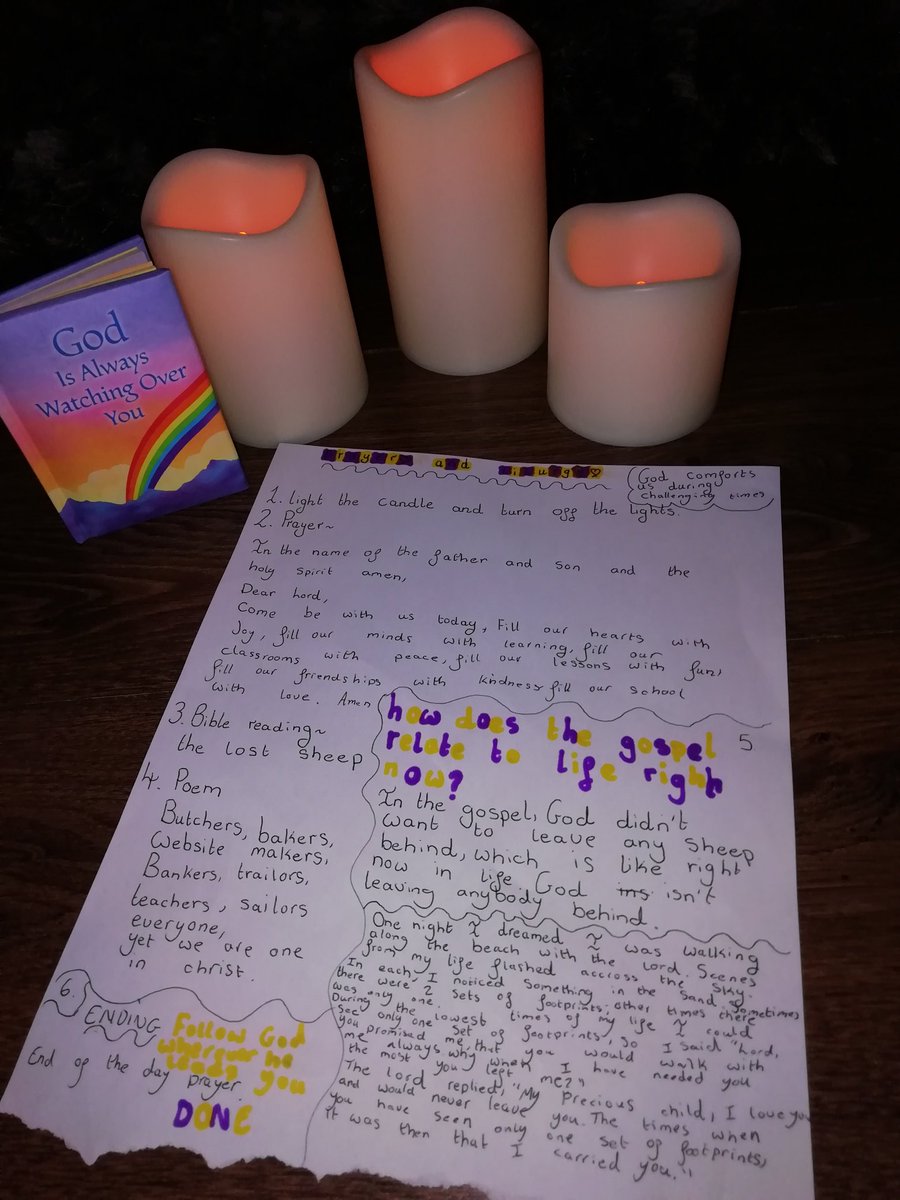 God
Is Always
Watching Over
You
Prayer and
God comforts
us during
challenging times
1. light the candle and turn off the lights.
2. Prayer~
In the name of the father and son and the
holy spirit amen,
Dear Lord,
Come be with us today, Fill our hearts with
Joy, fill our minds with learning, fill our
classrooms with peace, fill our lessons with fun,
fill our friendships with kindness fill our school
with love. Amen
3. Bible reading~
the lost sheep
4. Poem
Butchers, bakers,
Website makers,
Bankers, trailors,
teachers, sailors
everyone,
yet we are one
in christ.
how does the gospel
relate to life right
now?
5
In the gospel, God didn't
want to leave any sheep
behind, which is like right
now in life God isn't
leaving anybody behind.
One night I dreamed I was walking
along the beach with the Lord. Scenes
from my life flashed accross the sky.
In each, I noticed something in the sand. Sometimes
there were 2 sets of footprints; other times there
was only one.
During the lowest times of my life I could
see only one set of footprints, so I said "Lord,
you promised me, that you would walk with
me always. why when I have needed you
the most you left me?"
The lord replied, "My Precious child, I love you
and would never leave you. The times when
you have seen only one set of footprints,
it was then that I carried you."
6.
ENDING
Follow God
wherever he
leads you
End of the day prayer.
DONE